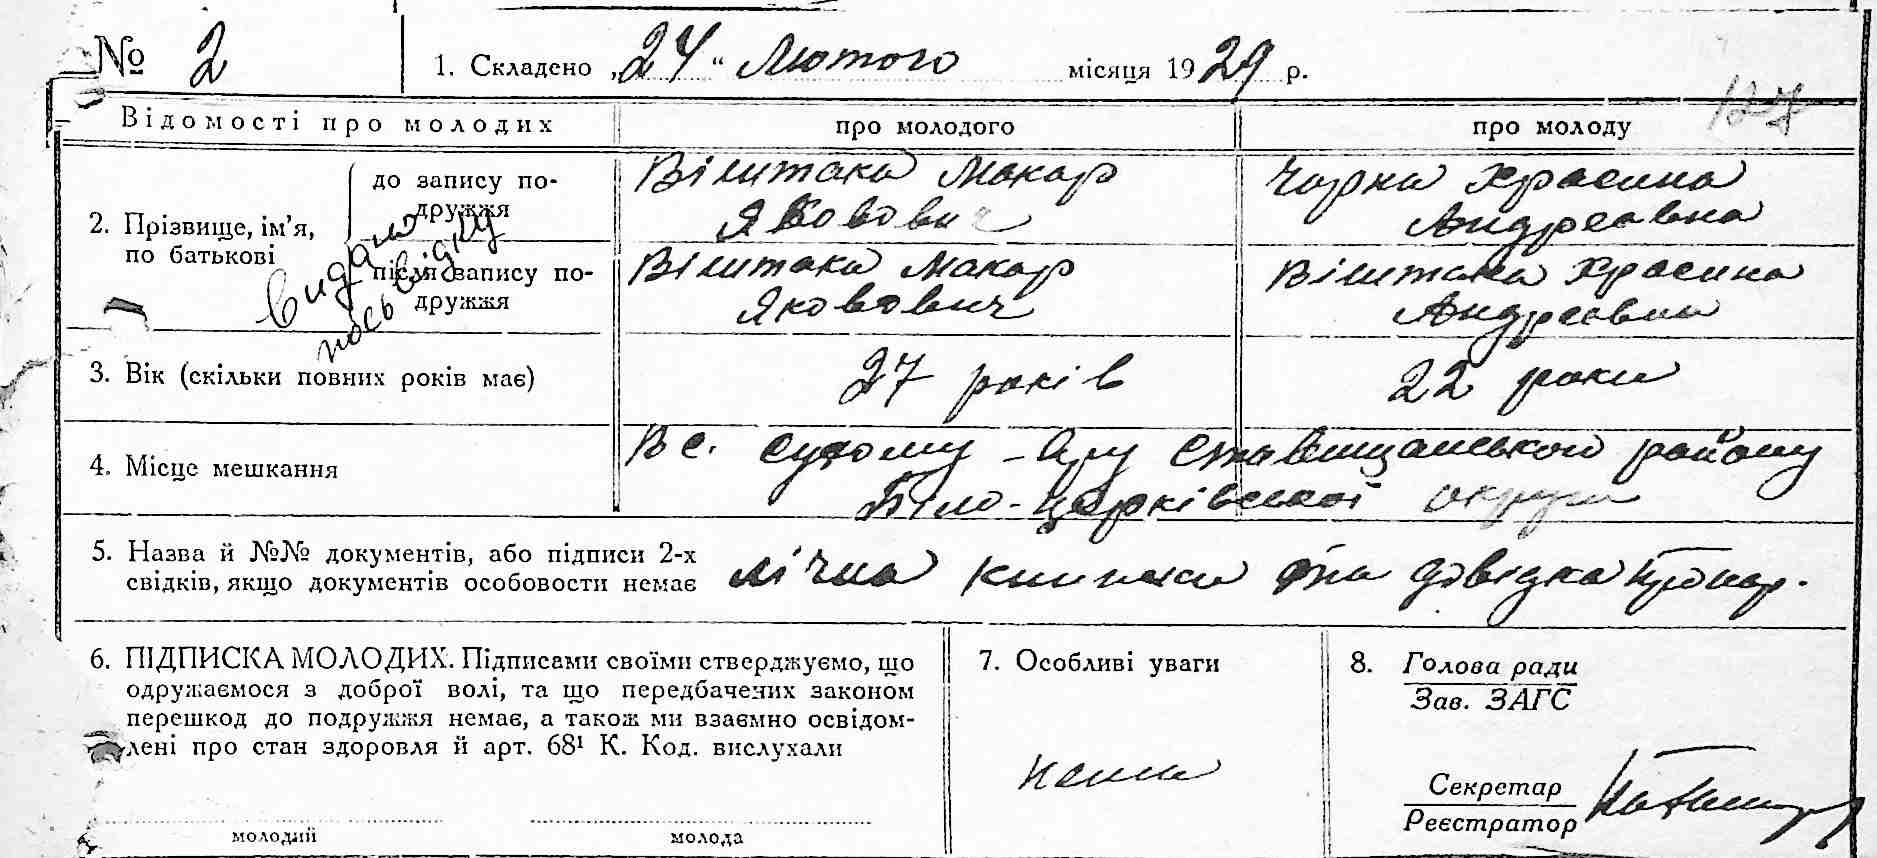 № 2
1. Складено „24“ Лютого місяця 1929 р.
127
Відомості про молодих
про молодого
про молоду
2. Прізвище, ім’я,
по батькові
до запису по-
дружжя
Віштака Макар
Яковович
Чорна Храсина
Андреєвна
після запису по-
дружжя
Віштака Макар
Яковович
Віштака Храсина
Андреєвна
видано
посьвідку
3. Вік (скільки повних років має)
27 років
22 роки
4. Місце мешкання
В с. Сухому-Яру Ставищанського району
Біло-Церківської округи
5. Назва й №№ документів, або підписи 2-х
свідків, якщо документів особовости немає
лічна книжка та довідка
6. ПІДПИСКА МОЛОДИХ. Підписами своїми стверджуємо, що
одружаємося з доброї волі, та що передбачених законом
перешкод до подружжя немає, а також ми взаємно освідом-
лені про стан здоровля й арт. 68¹ К. Код. вислухали
молодий
молода
7. Особливі уваги
нема
8. Голова ради
Зав. ЗАГС
Секретар
Реєстратор